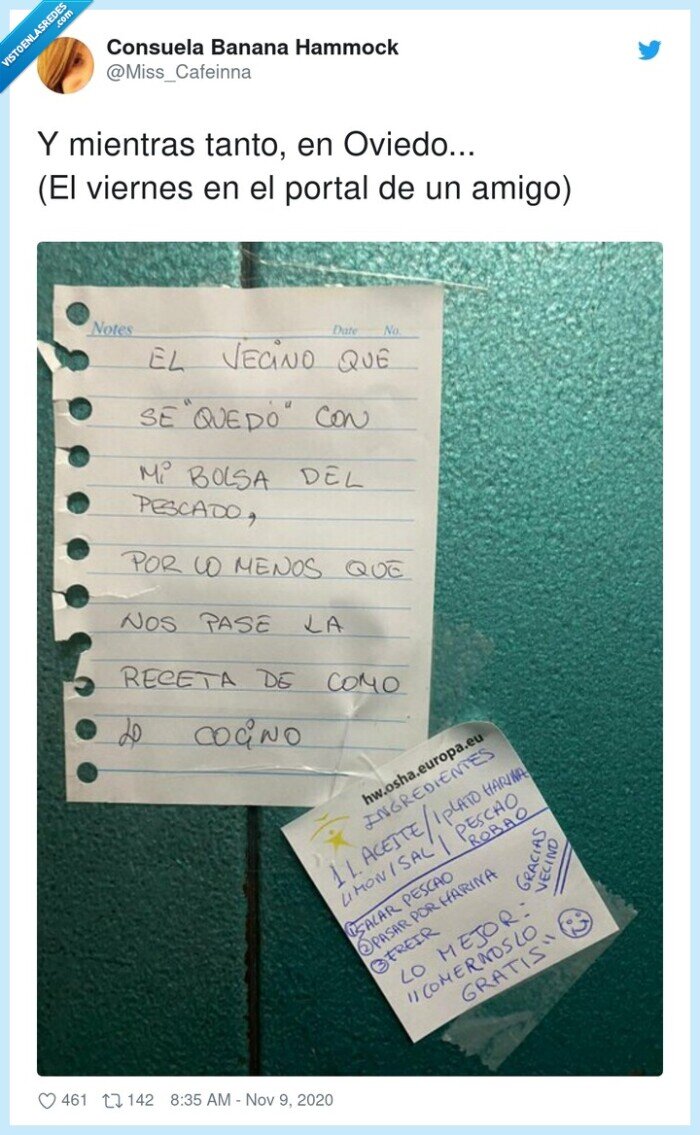 VISTOENLASREDES
.com
Consuela Banana Hammock
@Miss_Cafeinna
Y mientras tanto, en Oviedo...
(El viernes en el portal de un amigo)
Notes Date No.
EL VECINO QUE
SE "QUEDÓ" CON
Mi BOLSA DEL
PESCADO,
POR LO MENOS QUE
NOS PASE LA
RECETA DE COMO
LO COCiNO
hw.osha.europa.eu
INGREDIENTES
1 L. ACEITE/1 PLATO HARINA
LIMON/SAL/PESCAO
ROBAO
① SALAR PESCAO
② PASAR POR HARINA
③ FREIR
GRACIAS
VECINO
LO MEJOR:
"COMERNOSLO
GRATIS"
461 142 8:35 AM - Nov 9, 2020